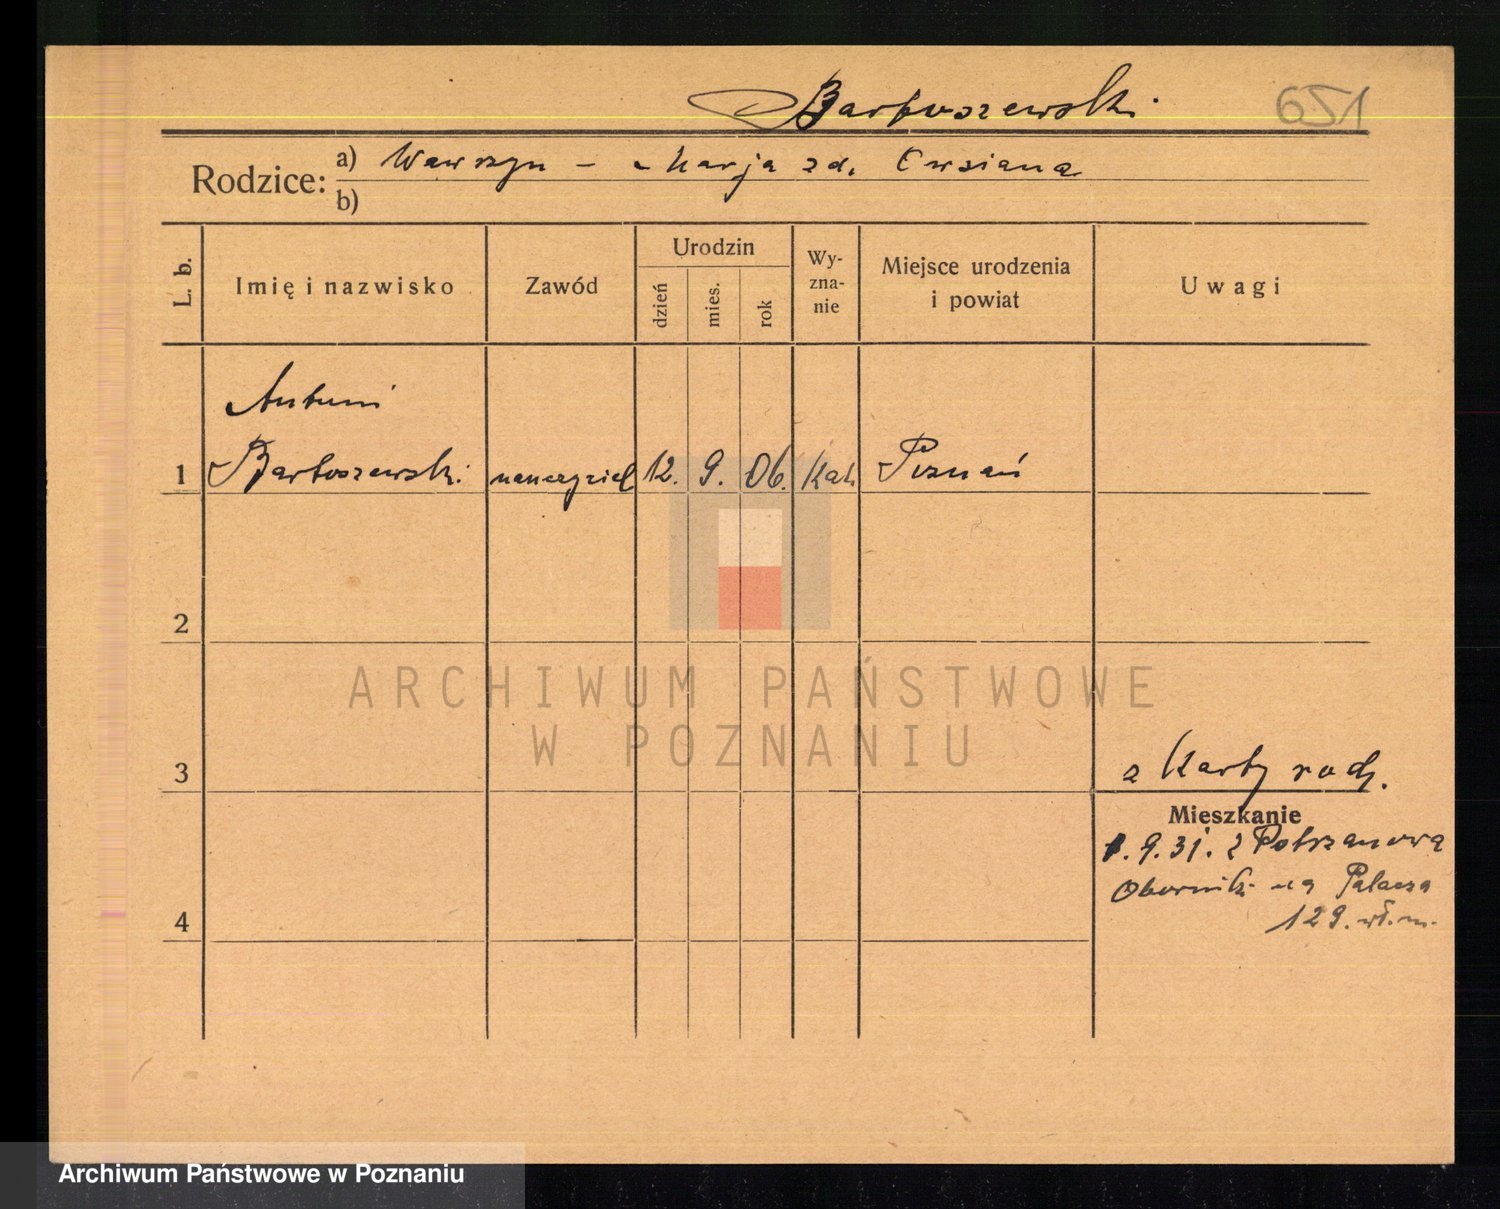 Bartoszewski 651
Rodzice: a) Wawrzyn - Marja zd. Owsiana
b)
L. b. Imię i nazwisko Zawód Urodzin dzień mies. rok Wy-zna-nie Miejsce urodzenia i powiat Uwagi
Antoni
1 Bartoszewski nauczyciel 12. 9. 06. Kat. Poznań
2
3 z Karty rodz.
Mieszkanie
9.31. z Potrzanowa
Oborniki na Palacza
4 129. wł. m.
ARCHIWUM PAŃSTWOWE
W POZNANIU
Archiwum Państwowe w Poznaniu